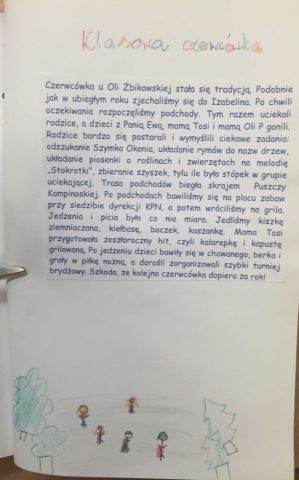 Klasowa czerwcówka
Czerwcówka u Oli Żbikowskiej stała się tradycją. Podobnie
jak w ubiegłym roku zjechaliśmy się do Izabelina. Po chwili
oczekiwania rozpoczęliśmy podchody. Tym razem uciekali
rodzice, a dzieci z Panią Ewą, mamą Tosi i mamą Oli P gonili.
Rodzice bardzo się postarali i wymyślili ciekawe zadania:
odszukanie Szymka Okonia, układanie rymów do nazw drzew,
układanie piosenki o roślinach i zwierzętach na melodię
„Stokrotki”, zbieranie szyszek, tylu ile było stópek w grupie
uciekającej. Trasa podchodów biegła skrajem Puszczy
Kampinoskiej. Po podchodach bawiliśmy się na placu zabaw
przy siedzibie dyrekcji KPN, a potem wróciliśmy na grila.
Jedzenia i picia było co nie miara. Jedliśmy kiszkę
ziemniaczana, kiełbasę, boczek, kaszankę. Mama Tosi
przygotowała zeszłoroczny hit, czyli kalarepkę i kapustę
grilowaną. Po jedzeniu dzieci bawiły się w chowanego, berka i
grały w piłkę nożną, a dorośli zorganizowali szybki turniej
brydżowy. Szkoda, ze kolejna czerwcówka dopiero za rok!